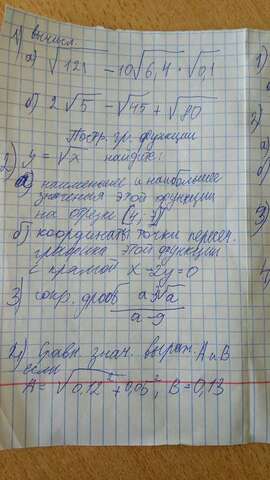 1) вычисл.
а) √121 - 10√6,4 · √0,1
б) 2√5 - √45 + √80
Постр. гр. функции
2) y = √x найдите:
а) наименьшее и наибольшее
значения этой функции
на отрезке [4; 7]
б) координаты точки пересеч.
графика этой функции
с прямой x - 2y = 0
3) сокр. дробь a-3√a
a-9
4) Сравн. знач. выраж. A и B
если
A = √0,12² + 0,05², B = 0,13
1)
а
б
3)